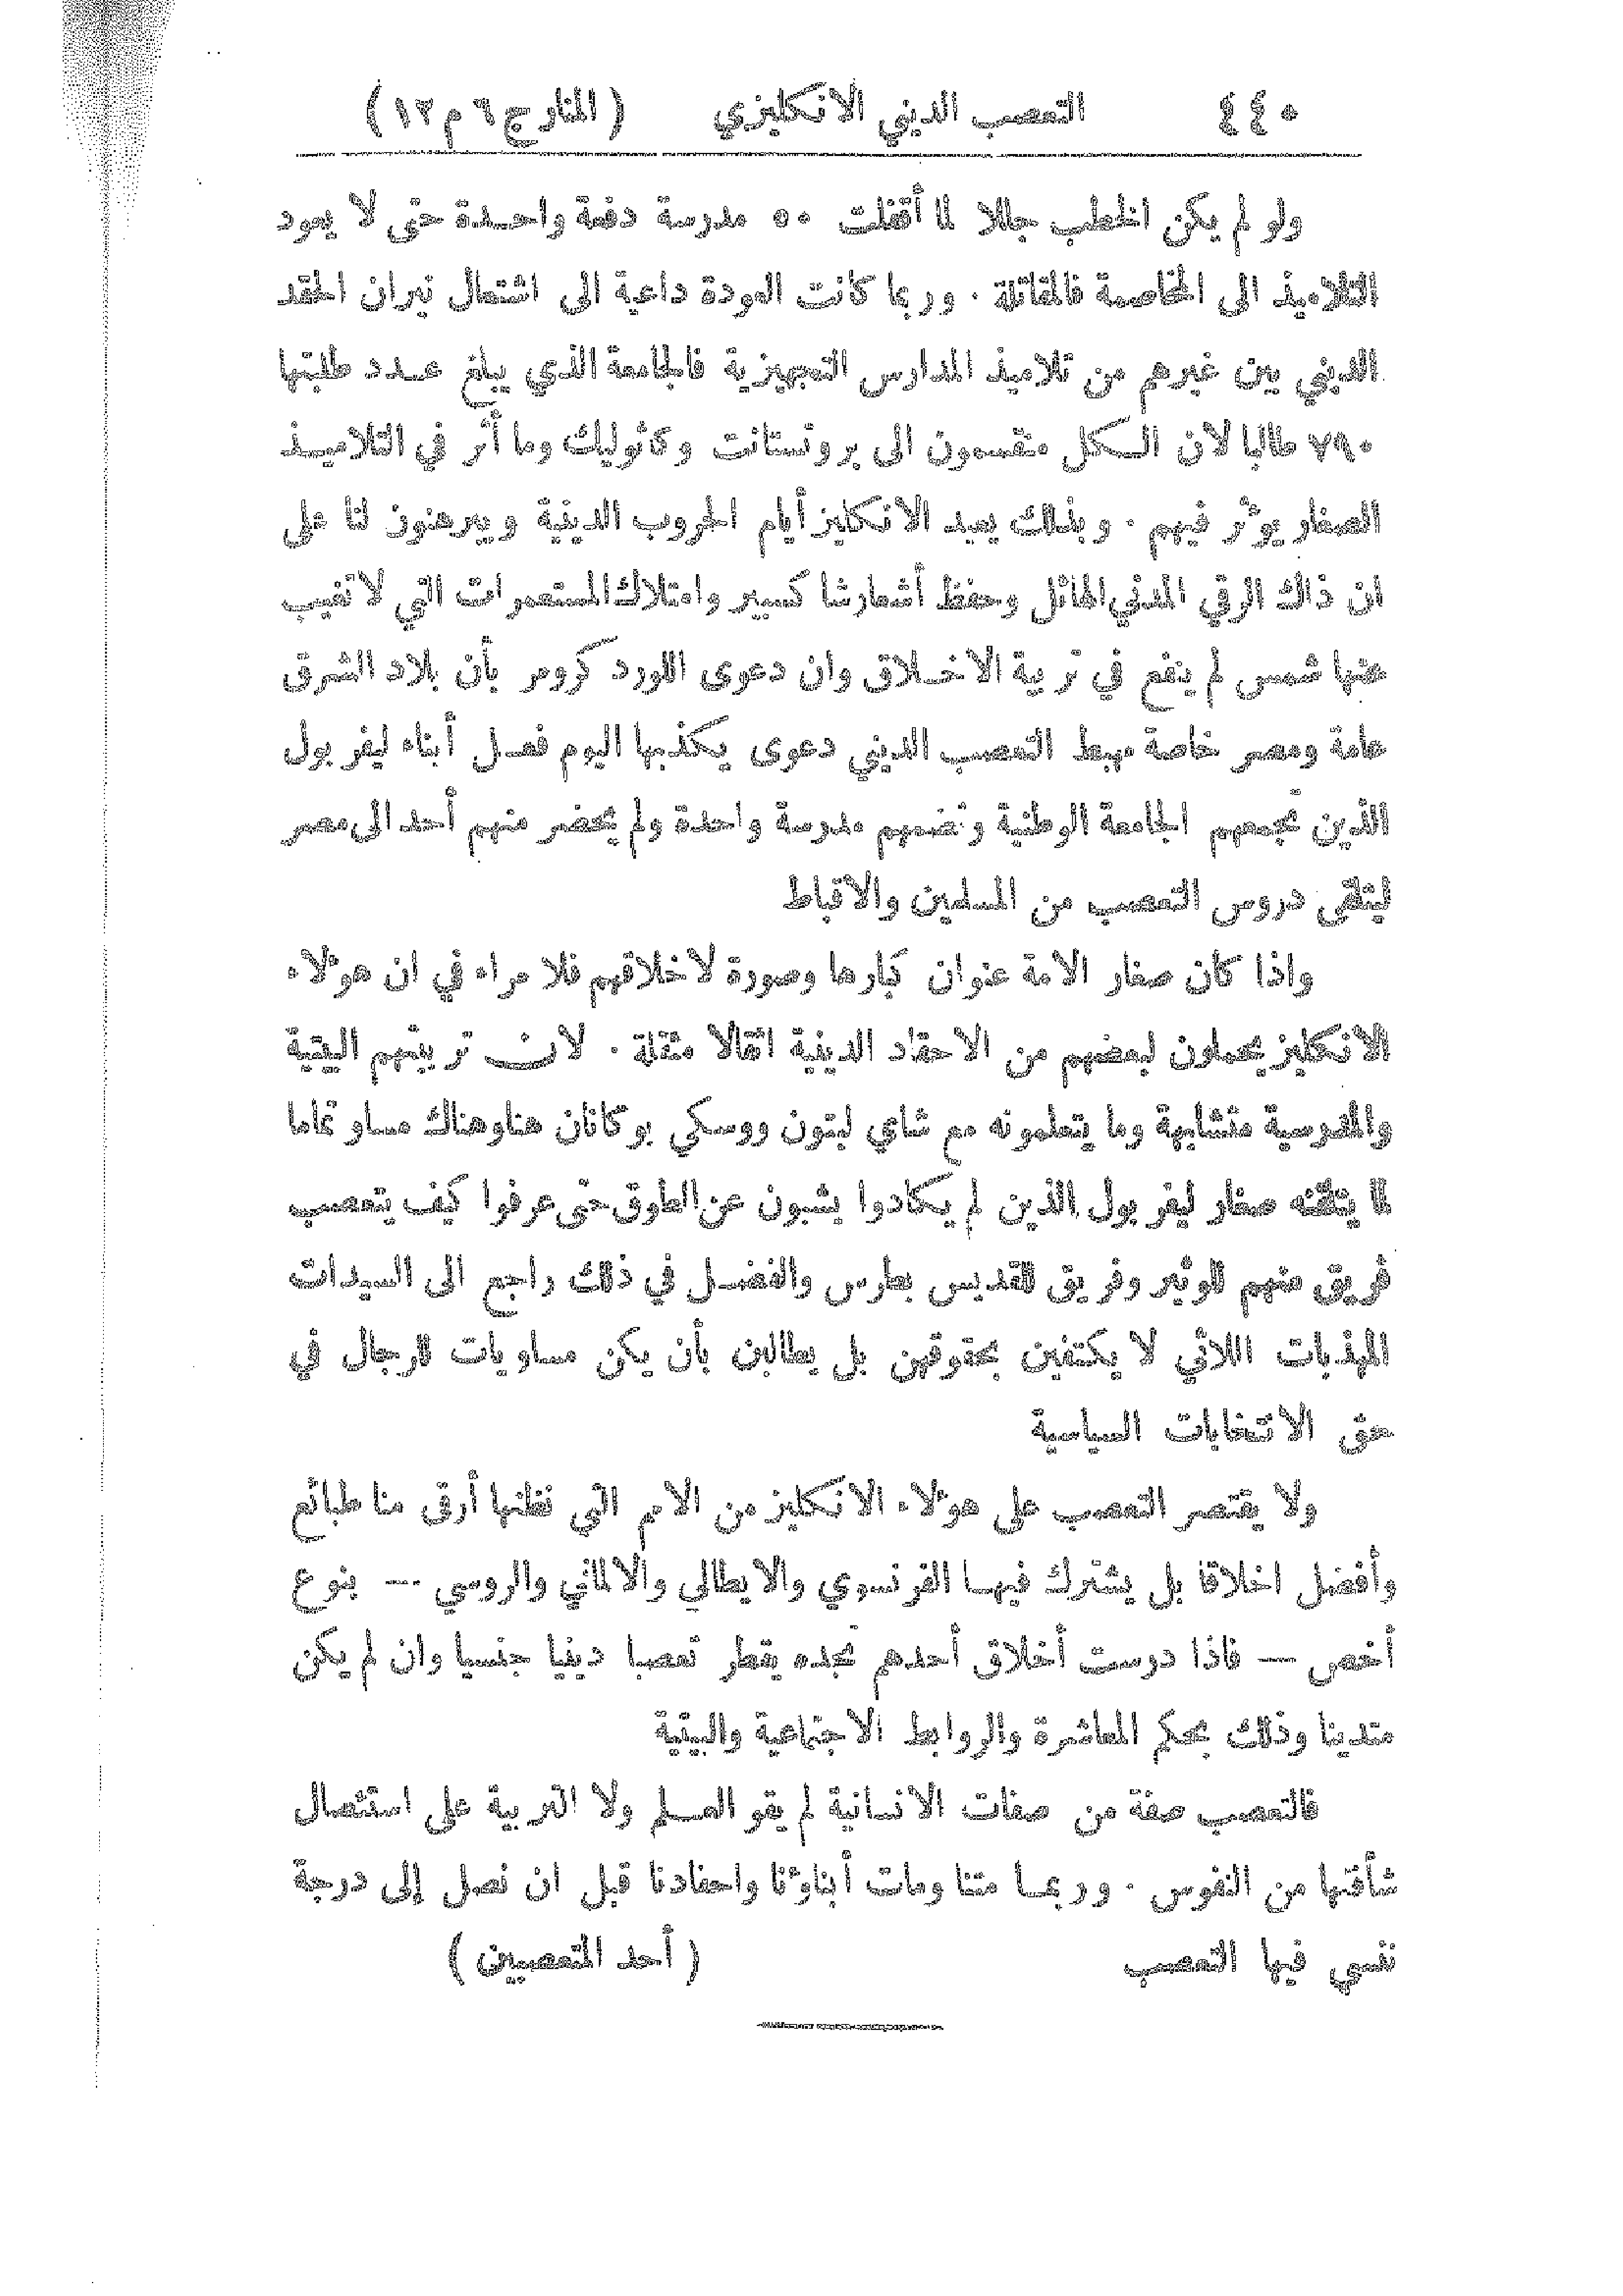 ٤٤٠ التعصب الديني الانكليزي ( المنار ج ٦ م ١٢ )
ولو لم يكن الخطب جللا لما أقفلت ٥٠ مدرسة دفعة واحدة حتى لا يعود
التلاميذ الى المخاصمة فالمقاتلة . وربما كانت العودة داعية الى اشتعال نيران الحقد
الديني بين غيرهم من تلاميذ المدارس التجهيزية فالجامعة الذي يبلغ عدد طلبتها
٧٩٠ طالبا لان الكل منقسمون الى بروتستانت وكاثوليك وما أثر في التلاميذ
الصغار يوثر فيهم . وبذلك يعيد الانكليز أيام الحروب الدينية ويبرهنون لنا على
ان ذاك الرقي المدني الهائل وحفظ أشعار شاكسبير وامتلاك المستعمرات التي لا تغيب
عنها شمس لم ينفع في تربية الاخلاق وان دعوى اللورد كرومر بأن بلاد الشرق
عامة ومصر خاصة مهبط التعصب الديني دعوى يكذبها اليوم فعل أبناء ليفربول
الذين تجمعهم الجامعة الوطنية وتضمهم مدرسة واحدة ولم يحضر منهم أحد الى مصر
ليتلقى دروس التعصب من المسلمين والاقباط
واذا كان صغار الامة عنوان كبارها وصورة لاخلاقهم فلا مراء في ان هوٴلاء
الانكليز يحملون لبعضهم من الاحقاد الدينية اثقالا مثقلة . لان تربيتهم البيتية
والمدرسية متشابهة وما يتعلمونه مع شاي لبتون ووسكي بوكانان هنا وهناك مساو تماما
لما يتلقنه صغار ليفربول الذين لم يكادوا يشبون عن الطوق حتى عرفوا كيف يتعصب
فريق منهم للوثير وفريق للقديس بطرس والفضل في ذلك راجع الى السيدات
المهذبات اللائي لا يكتفين بحقوقهن بل يطالبن بأن يكن مساويات للرجال في
حق الانتخابات السياسية
ولا يقتصر التعصب على هوٴلاء الانكليز من الامم التي نظنها أرقى منا طبائع
وأفضل اخلاقا بل يشترك فيها الفرنسوي والايطالي والالماني والروسي — بنوع
أخص — فاذا درست أخلاق أحدهم تجده يقطر تعصبا دينيا جنسيا وان لم يكن
متدينا وذلك بحكم المعاشرة والروابط الاجتماعية والبيتية
فالتعصب صفة من صفات الانسانية لم يقو العلم ولا التربية على استئصال
شأفتها من النفوس . وربما متنا ومات أبناوٴنا واحفادنا قبل ان نصل إلى درجة
ننسي فيها التعصب ( أحد المتعصبين )